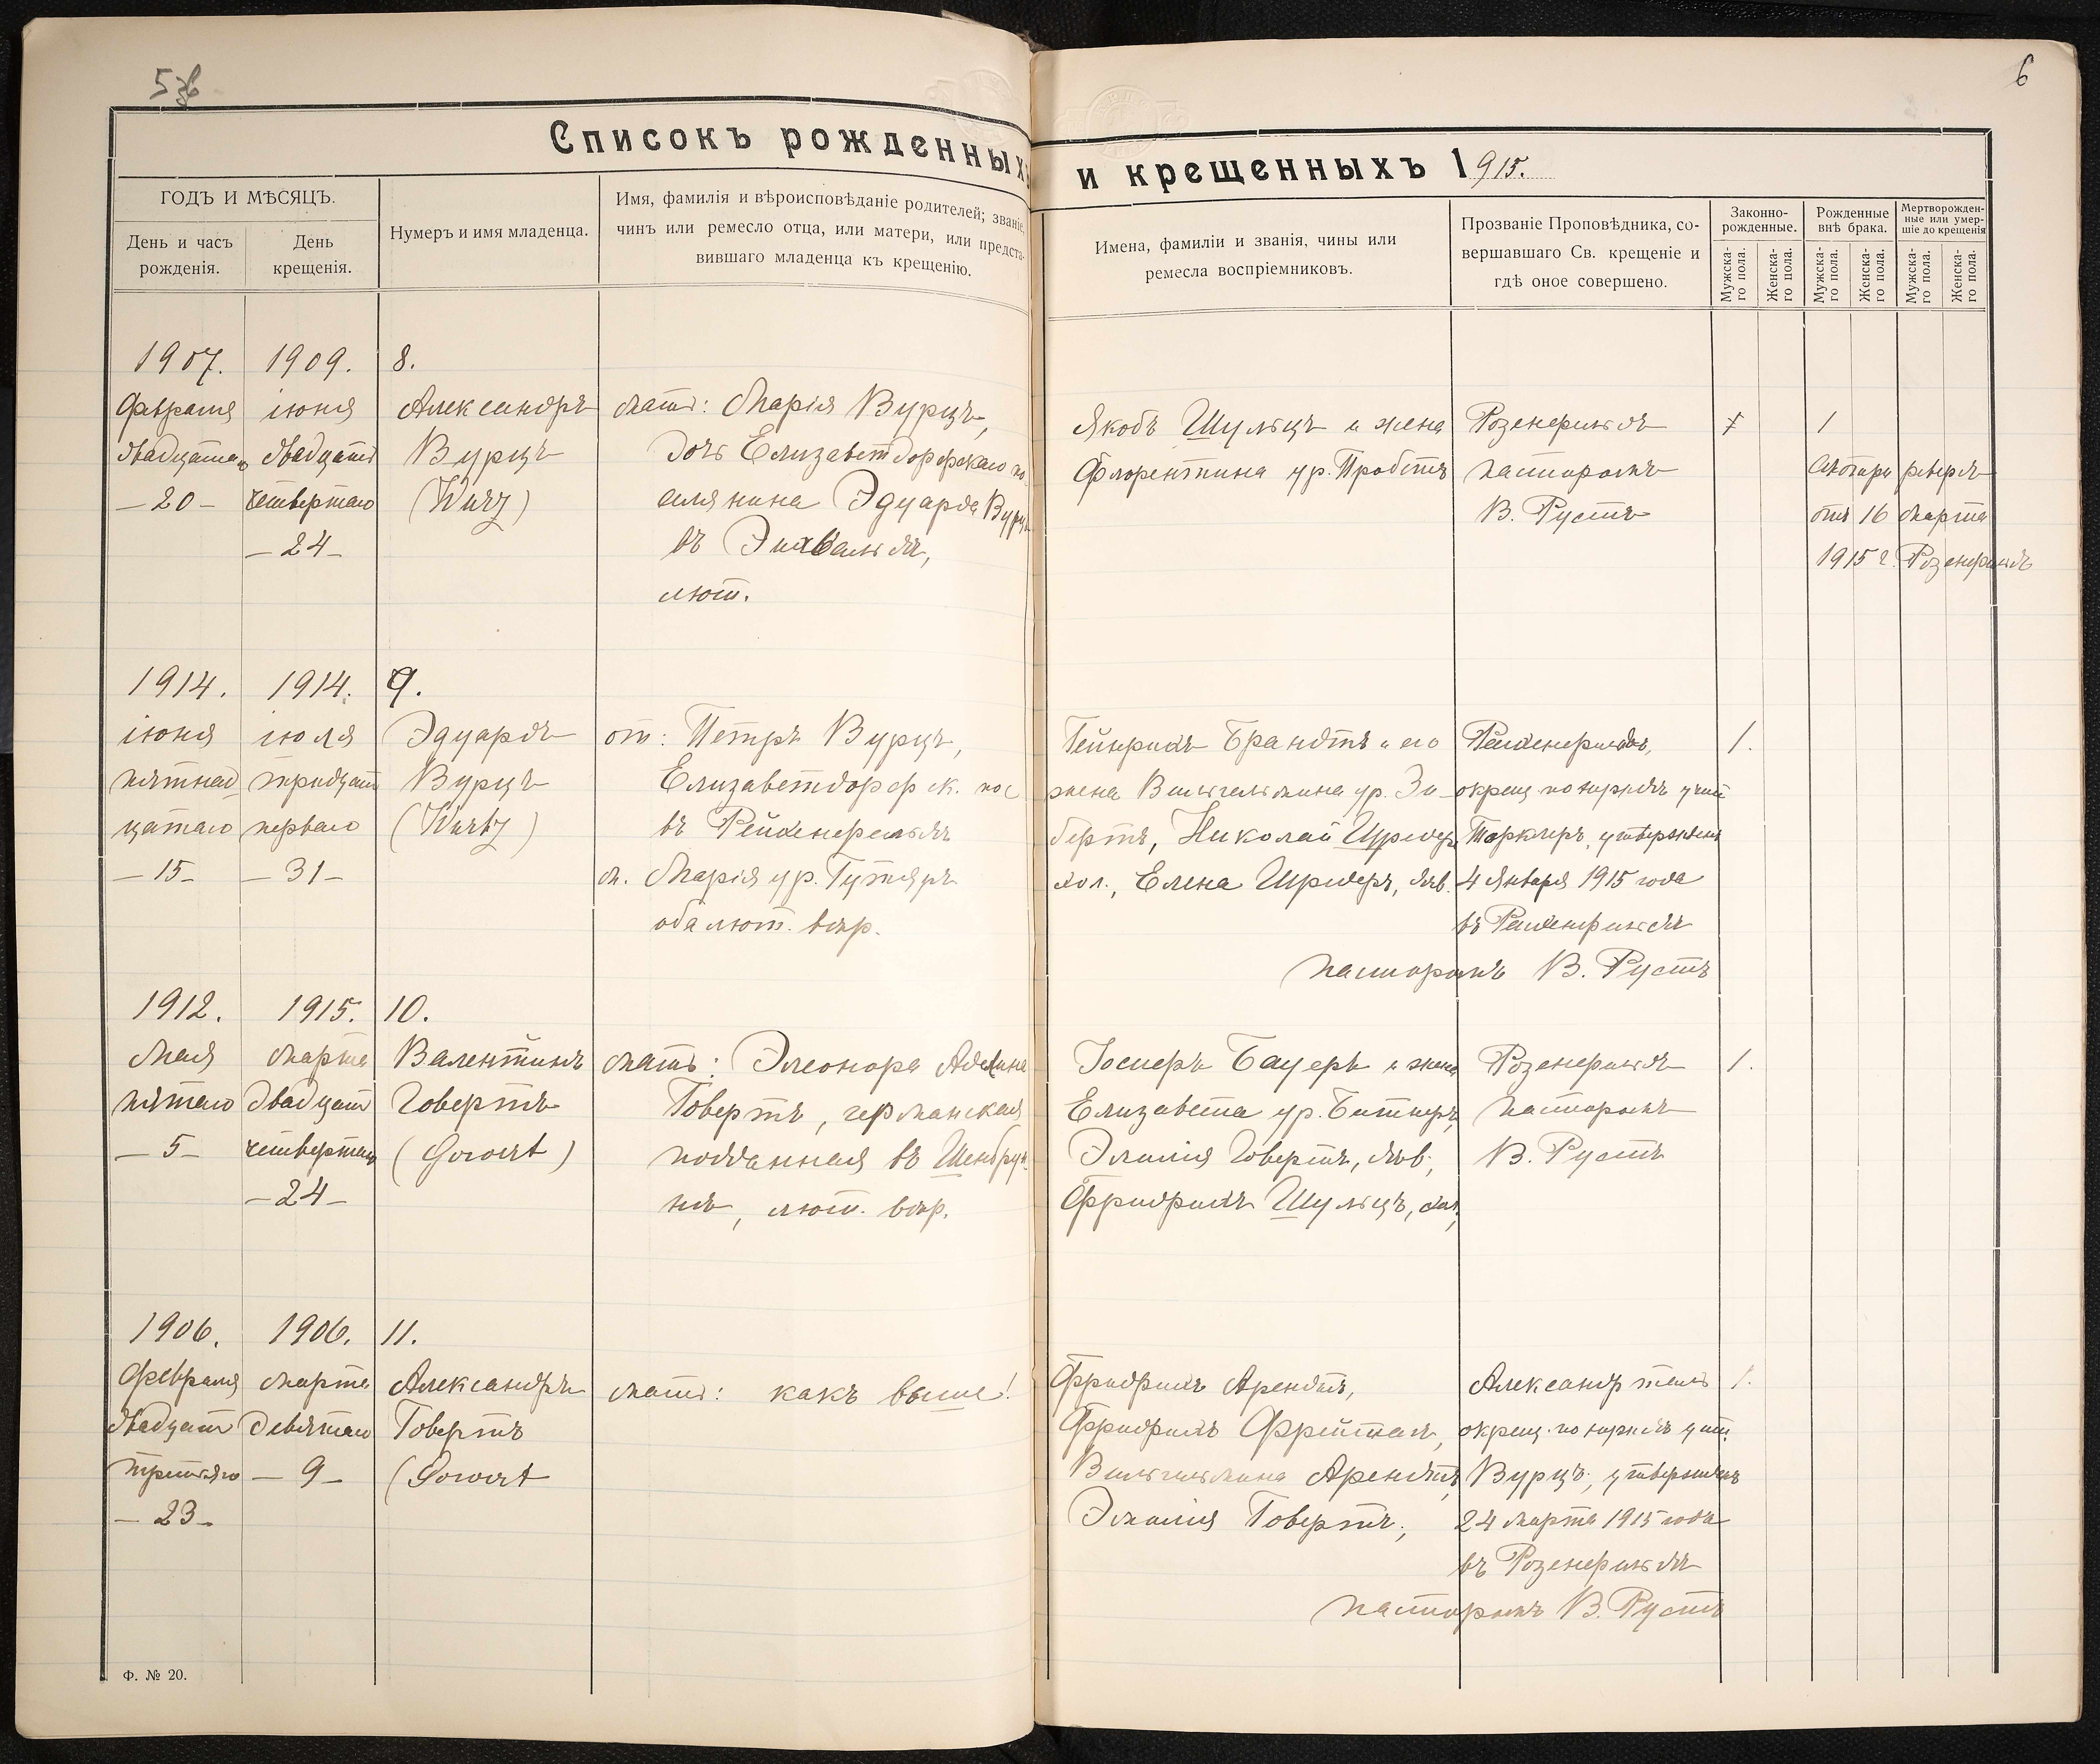 5 об
6
Списокъ рожденныхъ и крещенныхъ 1915.
ГОДЪ И МѢСЯЦЪ.
День и часъ
рожденія.
День
крещенія.
Нумеръ и имя младенца.
Имя, фамилія и вѣроисповѣданіе родителей; званіе,
чинъ или ремесло отца, или матери, или предста-
вившаго младенца къ крещенію.
Имена, фамиліи и званія, чины или
ремесла воспріемниковъ.
Прозваніе Проповѣдника, со-
вершавшаго Св. крещеніе и
гдѣ оное совершено.
Законно-
рожденные.
Рожденные
внѣ брака.
Мертворожден-
ные или умер-
шіе до крещенія
Мужска-
го пола.
Женска-
го пола.
Мужска-
го пола.
Женска-
го пола.
Мужска-
го пола.
Женска-
го пола.
1907.
Февраля
двадцатаго
—20—
1909.
іюня
двадцать
четвертаго
—24—
8.
Александръ
Вурцъ
(Wurz)
мать: Марія Вурцъ,
дочь Елизаветдорфскаго по-
селянина Эдуарда Вурцъ
въ Эихвальдѣ,
лют.
Якобъ Шульцъ и жена
Флорентина ур. Пробстъ
Розенфельдъ
пасторомъ
В. Рустъ
1
смотри реверсъ
отъ 16 марта
1915 г. Розенфельдъ
1914.
іюня
пятнад-
цатаго
—15—
1914.
іюля
тридцать
перваго
—31—
9.
Эдуардъ
Вурцъ
(Wurtz)
от: Петръ Вурцъ,
Елизаветдорфск. пос
въ Рейхенфельдѣ
м. Марія ур. Гутяръ
оба лют. вѣр.
Гейнрихъ Брандтъ и его
жена Вильгельмина ур. Зи-
бертъ, Николай Шредеръ
хол., Елена Шредеръ, дѣв.
Рейхенфельдъ,
окрещ. по нуждѣ учит.
утвержденъ
4 Января 1915 года
въ Рейхенфельдѣ
пасторомъ В. Рустъ
1.
1912.
Мая
пятаго
—5—
1915.
марта
двадцать
четвертаго
—24—
10.
Валентинъ
Говертъ
(Gowert)
мать: Элеонора Аделина
Говертъ, германская
подданная въ Шенбрун-
нѣ, лют. вѣр.
Іосифъ Бауеръ и жена
Елизавета ур. Битнеръ,
Эмилія Говертъ, дѣв.,
Фридрихъ Шульцъ, хол.,
Розенфельдъ
пасторомъ
В. Рустъ
1.
1906.
Февраля
двадцать
третьяго
—23—
1906.
марта
девятаго
—9—
11.
Александръ
Говертъ
(Gowert
мать: какъ выше!
Фридрихъ Арендтъ,
Фридрихъ Фрейтагъ,
Вильгельмина Арендтъ,
Эмилія Говертъ,
Александрталь
окрещ. по нуждѣ учит.
Вурцъ, утвержденъ
24 марта 1915 года
въ Розенфельдѣ
пасторомъ В. Рустъ
1.
Ф. № 20.